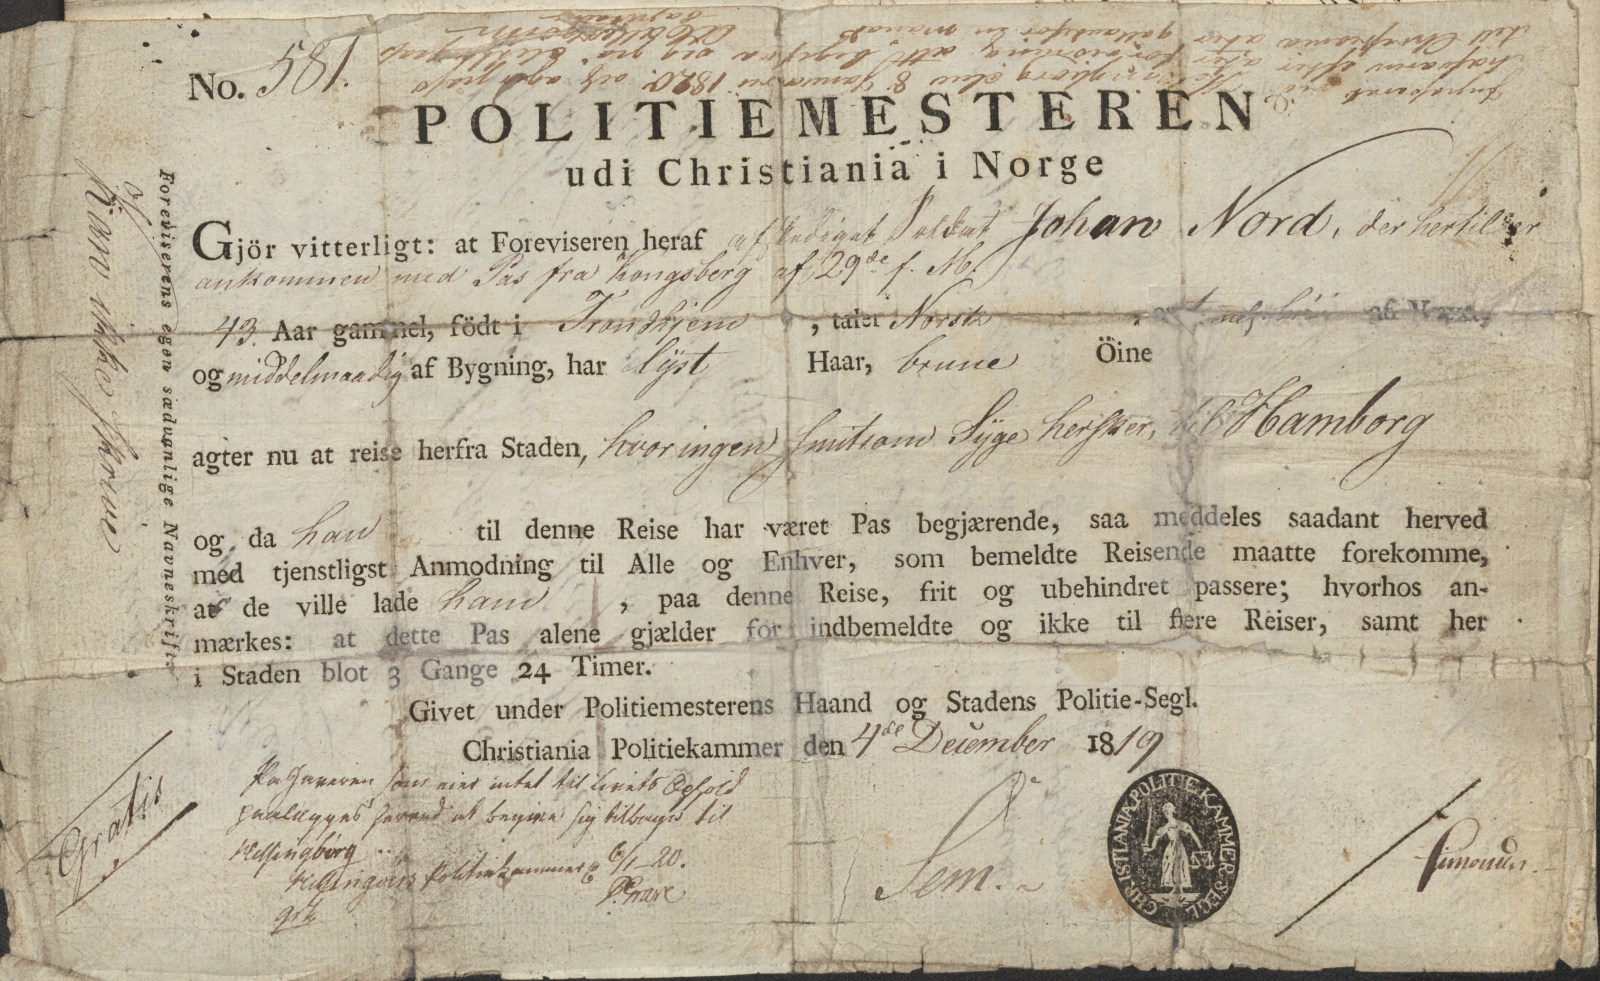 No. 581.
POLITIEMESTEREN
udi Christiania i Norge
Gjör vitterligt: at Foreviseren heraf afskediget Soldat Johan Nord, der hertil er
ankommen med Pas fra Kongsberg af 29de f. M.
43. Aar gammel, födt i Trondhjem, taler Norsk, af Væxt,
og middelmaadig af Bygning, har lyst Haar, brune Öine
agter nu at reise herfra Staden, hvor ingen smitsom Syge hersker, til Hamborg
og da han til denne Reise har været Pas begjærende, saa meddeles saadant herved
med tjenstligst Anmodning til Alle og Enhver, som bemeldte Reisende maatte forekomme,
at de ville lade ham, paa denne Reise, frit og ubehindret passere; hvorhos an-
mærkes: at dette Pas alene gjælder for indbemeldte og ikke til flere Reiser, samt her
i Staden blot 3 Gange 24 Timer.
Givet under Politiemesterens Haand og Stadens Politie-Segl.
Christiania Politiekammer den 4de December 1819
Sem.
CHRISTIANIA POLITIE KAMMERS SEGL
Gratis
Pas Haveren som eier intet til Livets Ophold
paalægges herved at begive sig tilbage til
Helsingborg
Helsingörs Politiekammer 6/1 20.
Foreviserens egen sædvanlige Navneskrift:
Kan ikke skrive